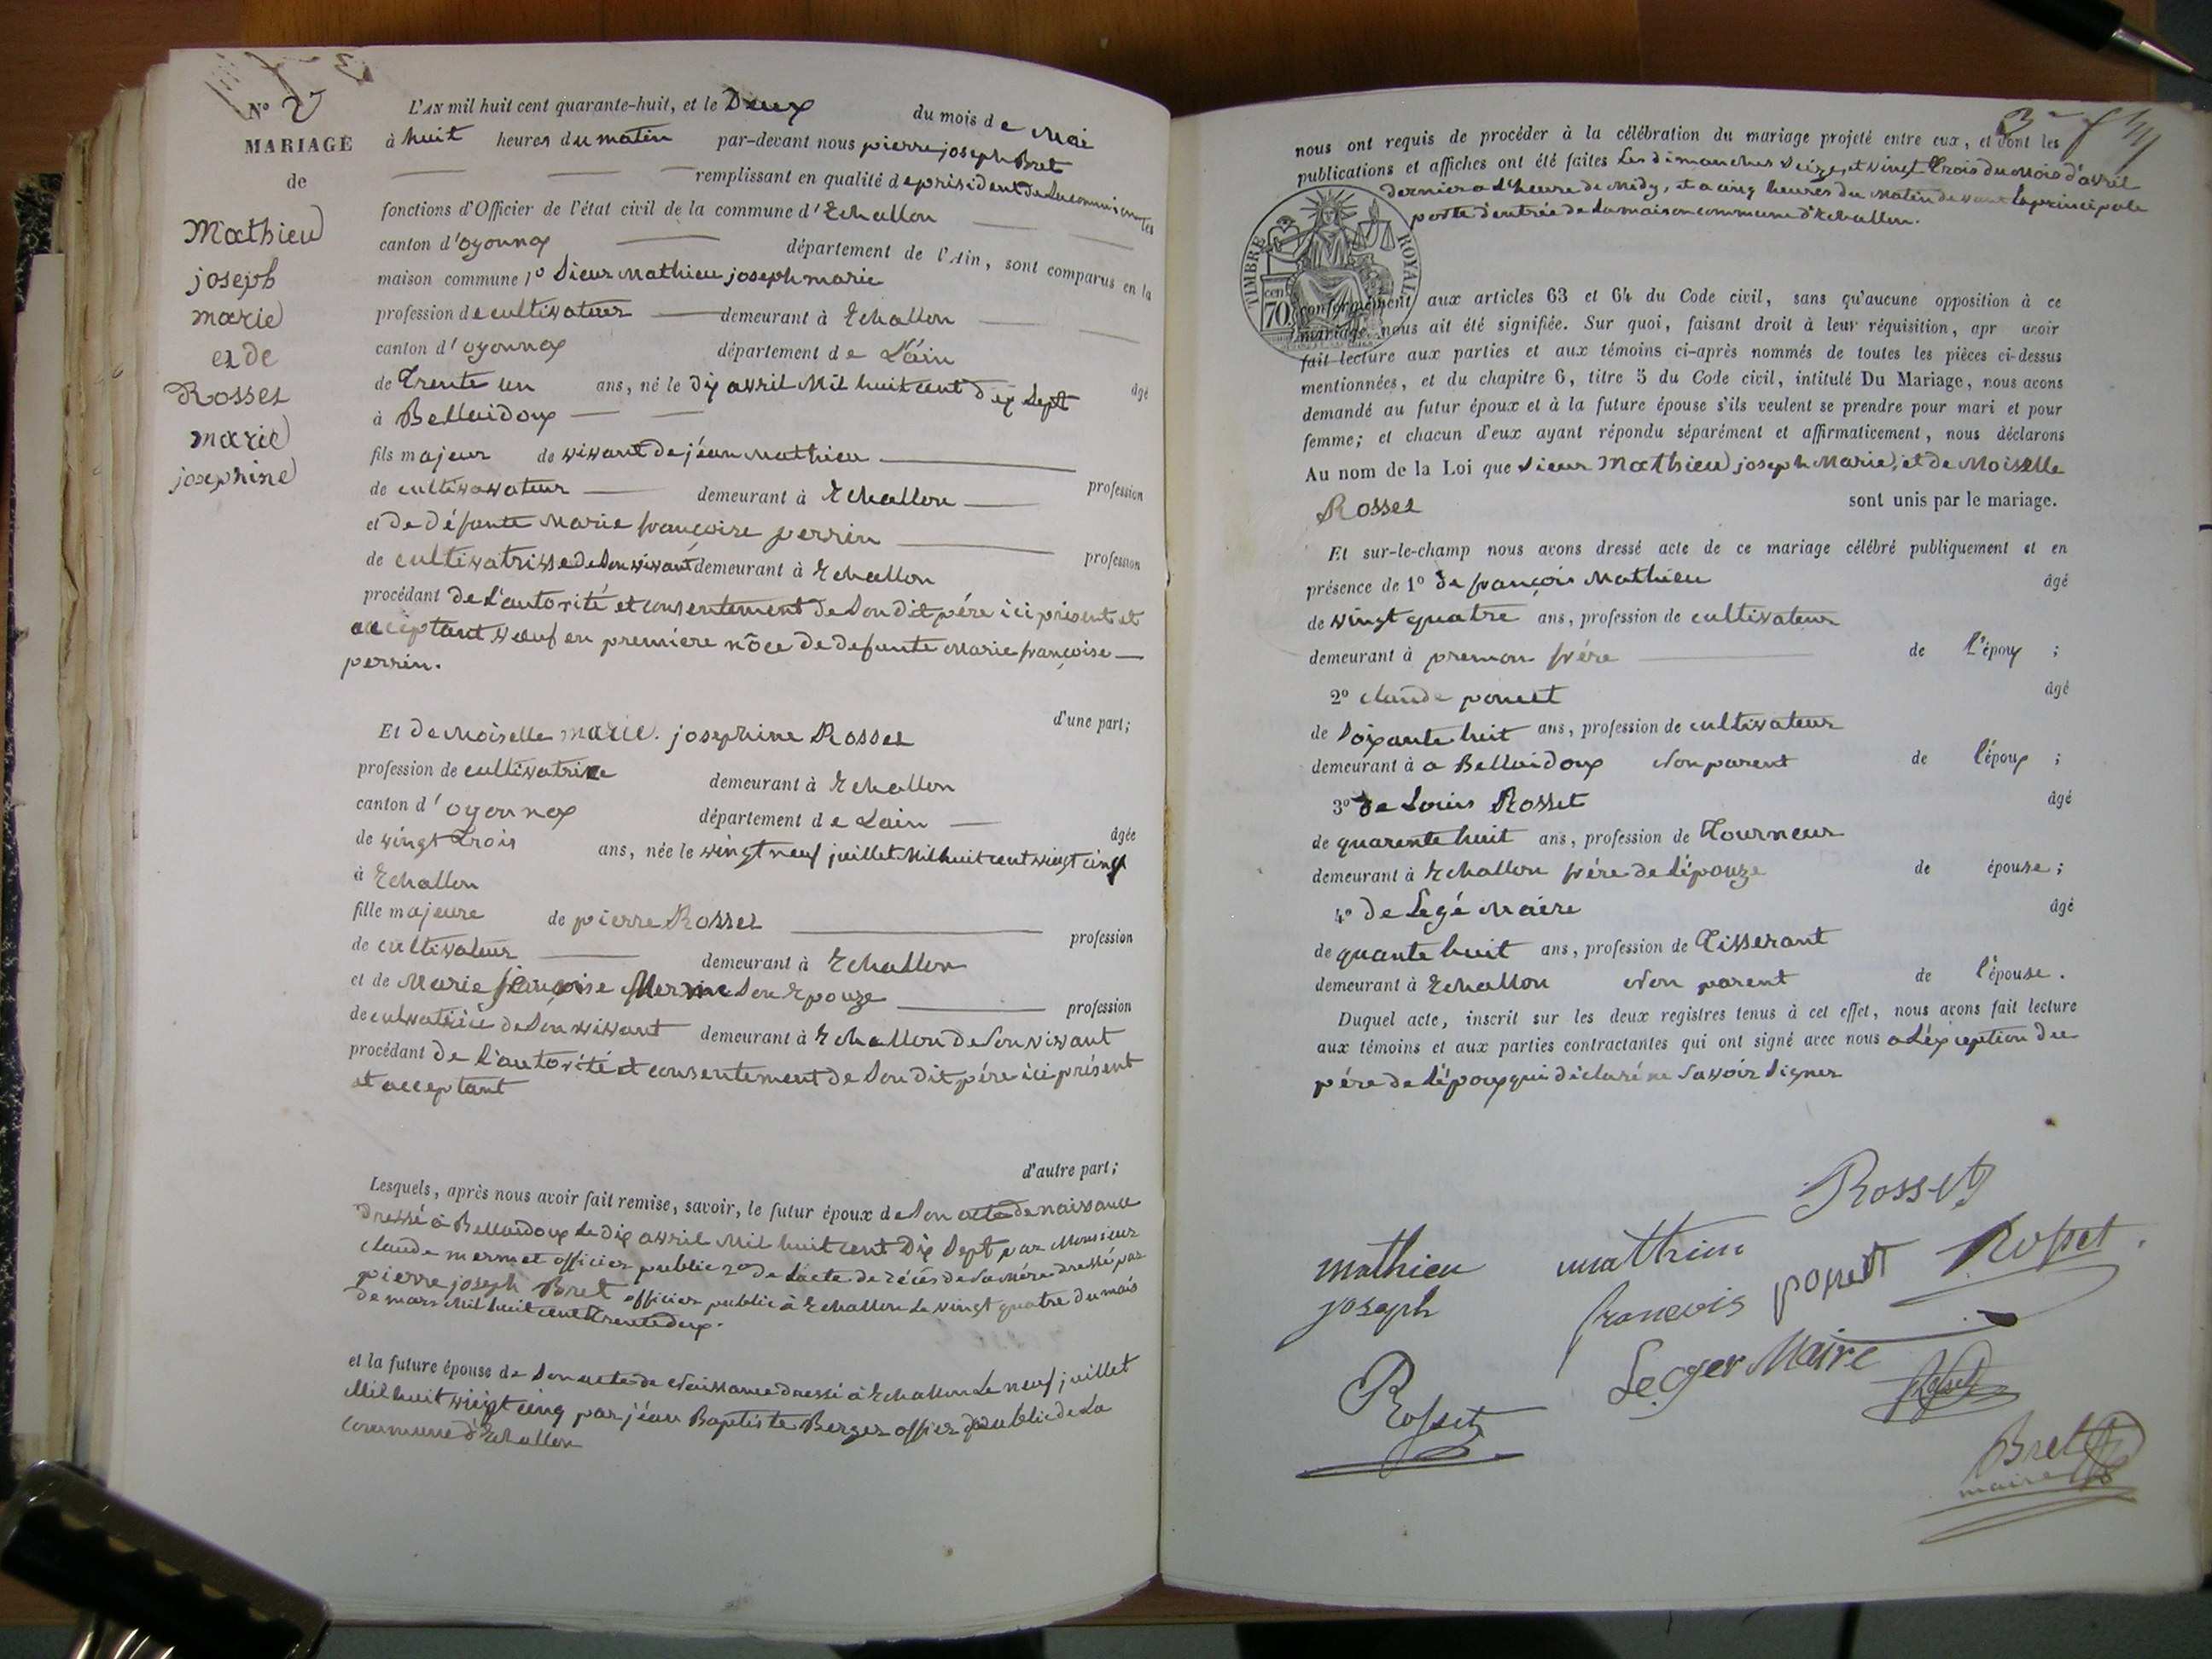 N° 2
MARIAGE
de
Mathieu
joseph
marie
et de
Rosset
marie
josephine
L'AN mil huit cent quarante-huit, et le Deux du mois de Mai
à huit heures du matin par-devant nous pierre joseph Bret
remplissant en qualité de président de la commission les
fonctions d'Officier de l'état civil de la commune d'Echallon
canton d'oyonnax département de l'Ain, sont comparus en la
maison commune 1° Sieur Mathieu joseph marie
profession de cultivateur demeurant à Echallon
canton d'oyonnax département de L'ain
âgé
de Trente un ans, né le dix avril Mil huit cent dix Sept
à Bellaidoux
fils majeur de vivant de jéan Mathieu
profession
de cultivavateur demeurant à Echallon
et de défunte Marie françoise perrin
profession
de cultivatrisse de Son vivant demeurant à Echallon
procédant de L'autorité et consentement de Son dit pére ici présent et
acceptant veuf en premiere nôce de defunte Marie françoise
perrin.
d'une part;
Et deMoiselle marie. josephine Rosset
profession de cultivatrice demeurant à Echallon
canton d'oyonnax département de Lain
âgée
de vingt trois ans, née le vingt neuf juillet Mil huit cent vingt cinq
à Echallon
fille majeure de pierre Rosset
profession
de cultivateur demeurant à Echallon
et de Marie françoise Mermet Son Epouze
profession
de culvatrice de Son vivant demeurant à Echallon de Son vivant
procédant de L'autorité et consentement de Son dit pére ici présent
et acceptant
d'autre part;
Lesquels, après nous avoir fait remise, savoir, le futur époux de Son acte de naissance
dressé à Bellaidoux Le dix avril Mil huit cent Dix Sept par Monsieur
claude mermet officier public 2° de L'acte de décés de Sa mére dressé par
pierre joseph Bret officier public à Echallon Le vingt quatre du mois
de mars Mil huit cent trente deux.
et la future épouse de Son acte de Naissance dressé à Echallon Le neuf juillet
Mil huit vingt cinq par jéan Baptiste Berger officier public de La
commune d'Echallon
nous ont requis de procéder à la célébration du mariage projeté entre eux, et dont les
publications et affiches ont été faites Les dimanches Seize, et vingt trois du Mois d'avril
dernier a L'heure de Midy, et a cinq heures du Matin devant La principale
porte d'entrée de La maison commune d'Echallon.
TIMBRE ROYAL
cent
70
conformément aux articles 63 et 64 du Code civil, sans qu'aucune opposition à ce
mariage nous ait été signifiée. Sur quoi, faisant droit à leur réquisition, apr avoir
fait lecture aux parties et aux témoins ci-après nommés de toutes les pièces ci-dessus
mentionnées, et du chapitre 6, titre 5 du Code civil, intitulé Du Mariage, nous avons
demandé au futur époux et à la future épouse s'ils veulent se prendre pour mari et pour
femme; et chacun d'eux ayant répondu séparément et affirmativement, nous déclarons
Au nom de la Loi que Sieur Mathieu joseph Marie, et deMoiselle
Rosset sont unis par le mariage.
Et sur-le-champ nous avons dressé acte de ce mariage célébré publiquement et en
présence de 1° de françois Mathieu âgé
de vingt quatre ans, profession de cultivateur
demeurant à premon frére de l'époux ;
2° claude poncet âgé
de Soixante huit ans, profession de cultivateur
demeurant à a Bellaidoux Non parent de l'époux ;
3° de Louis Rosset âgé
de quarente huit ans, profession de Tourneur
demeurant à Echallon frére de L'épouze de épouse ;
4° de Legé Maire âgé
de quante huit ans, profession de Tisserant
demeurant à Echallon Non parent de l'épouse.
Duquel acte, inscrit sur les deux registres tenus à cet effet, nous avons fait lecture
aux témoins et aux parties contractantes qui ont signé avec nous a L'éxception du
pére de L'époux qui déclaré ne Savoir Signer
Rosset
mathieu mathieu poncet Rosset
joseph francois
Leger Maire
Rosset
Bret
maire